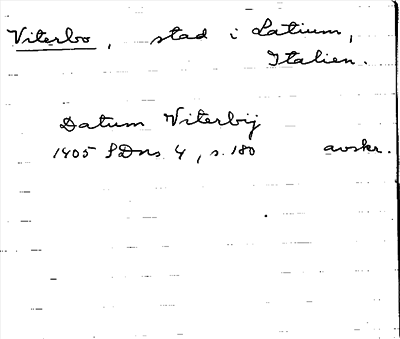 Viterbo, stad i Latium,
Italien.
Datum Viterbij
1405 SDns 4, s. 180 avskr.